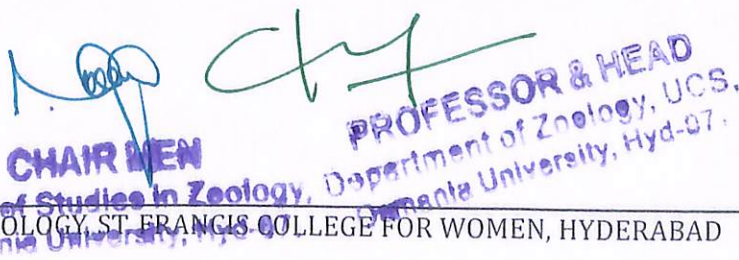 CHAIR MEN
of Studies in Zoology,
nia University, Hyd-07.
PROFESSOR & HEAD
Department of Zoology, UCS,
Osmania University, Hyd-07.
OLOGY, ST. FRANCIS COLLEGE FOR WOMEN, HYDERABAD